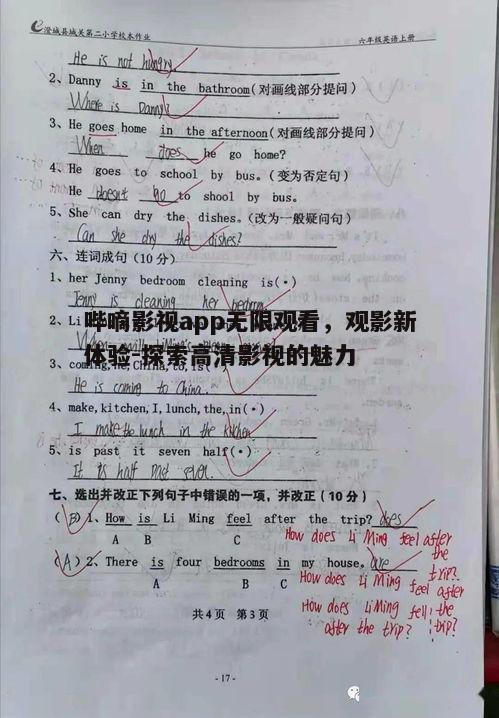 澄城县城关第二小学校本作业 六年级英语上册
He is not hungry
2、Danny is in the bathroom(对画线部分提问)
Where is Danny?
3、He goes home in the afternoon(对画线部分提问)
When does he go home?
4、He goes to school by bus。(变为否定句)
He doesn't go to shool by bus.
5、She can dry the dishes。(改为一般疑问句)
Can she dry the dishes?
六、连词成句(10分)
1、her Jenny bedroom cleaning is(·)
Jenny is cleaning her bedroom
哔嘀影视app无限观看，观影新
2、Li
体验-探索高清影视的魅力
3、coming,he,China,to,is
He is coming to China.
4、make,kitchen,I,lunch,the,in(·)
I make the lunch in the kitchen
5、is past it seven half(·)
It is half past seven.
七、选出并改正下列句子中错误的一项，并改正(10分)
(B)1、How is Li Ming feel after the trip? does
A B C
How does Li Ming feel after the trip?
(A)2、There is four bedrooms in my house。are
A B C
How does Li Ming feel after the trip?
How does Li Ming fell after the trip?
共4页 第3页
-17-